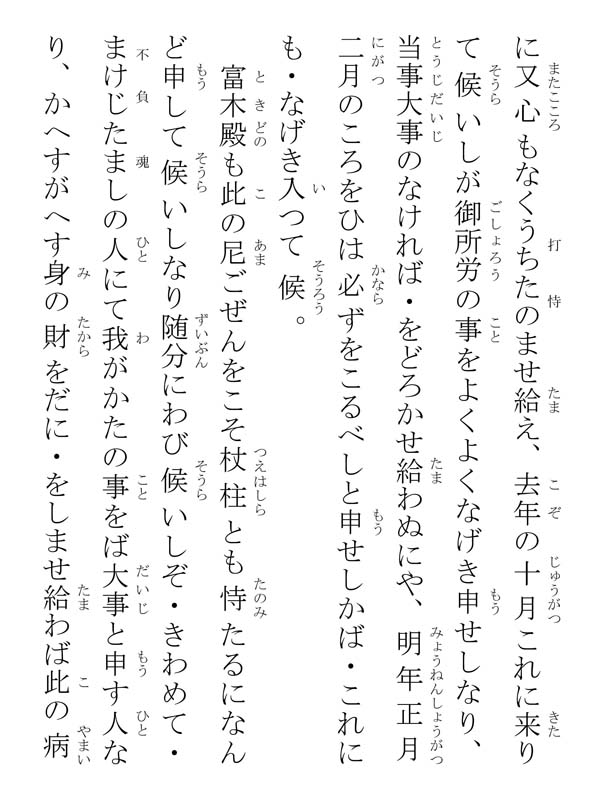 に又心もなくうちたのませ給え、去年の十月これに来り
て候いしが御所労の事をよくよくなげき申せしなり、
当事大事のなければ・をどろかせ給わぬにや、明年正月
二月のころをひは必ずをこるべしと申せしかば・これに
も・なげき入つて候。
富木殿も此の尼ごぜんをこそ杖柱とも恃たるになん
ど申して候いしなり随分にわび候いしぞ・きわめて・
まけじたましの人にて我がかたの事をば大事と申す人な
り、かへすがへす身の財をだに・をしませ給わば此の病